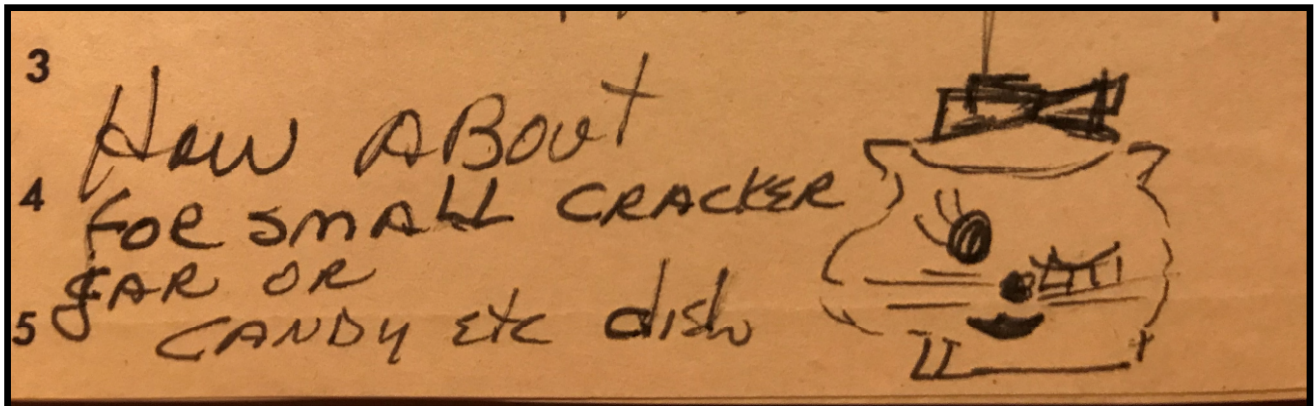 3
How ABout
4
FOR SMALL CRACKER
JAR OR
5
CANDY Etc dish